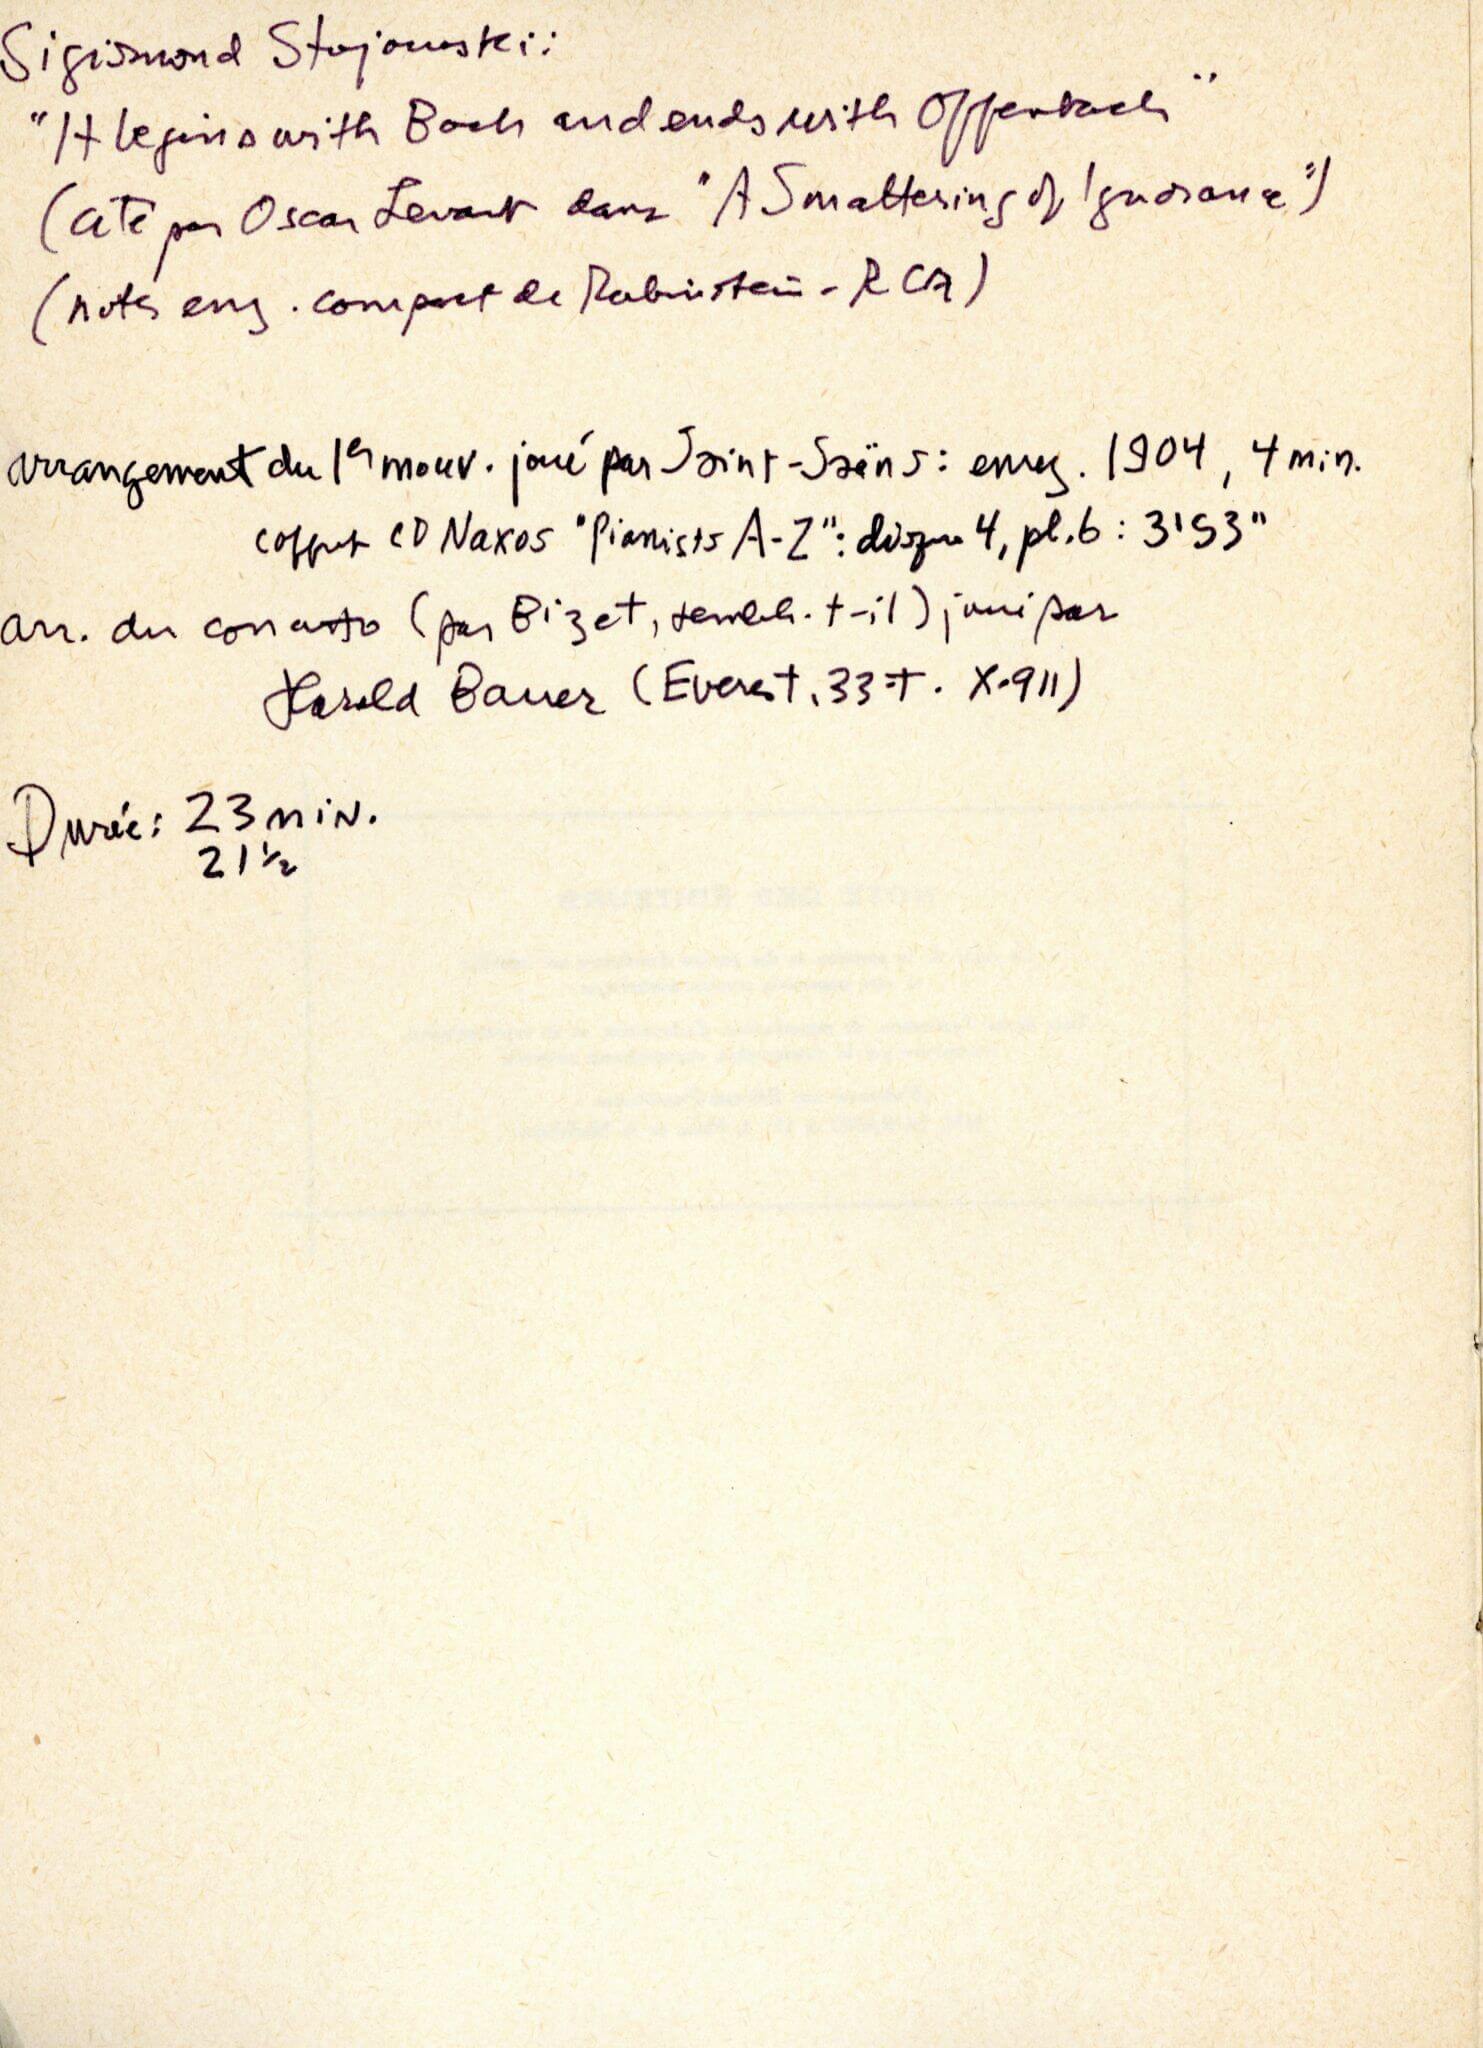 Sigismond Stojowski:
"It begins with Bach and ends with Offenbach"
(cité par Oscar Levant dans "A Smattering of Ignorance")
(notes enreg. compact de Rubinstein - RCA)
arrangement du 1er mouv. joué par Saint-Saëns: enreg. 1904, 4 min.
coffret CD Naxos "Pianists A-Z": disque 4, pl. 6: 3'53"
arr. du concerto (par Bizet, semble-t-il) joué par
Harold Bauer (Everest, 33-T. X-911)
Durée: 23 min.
21 1/2